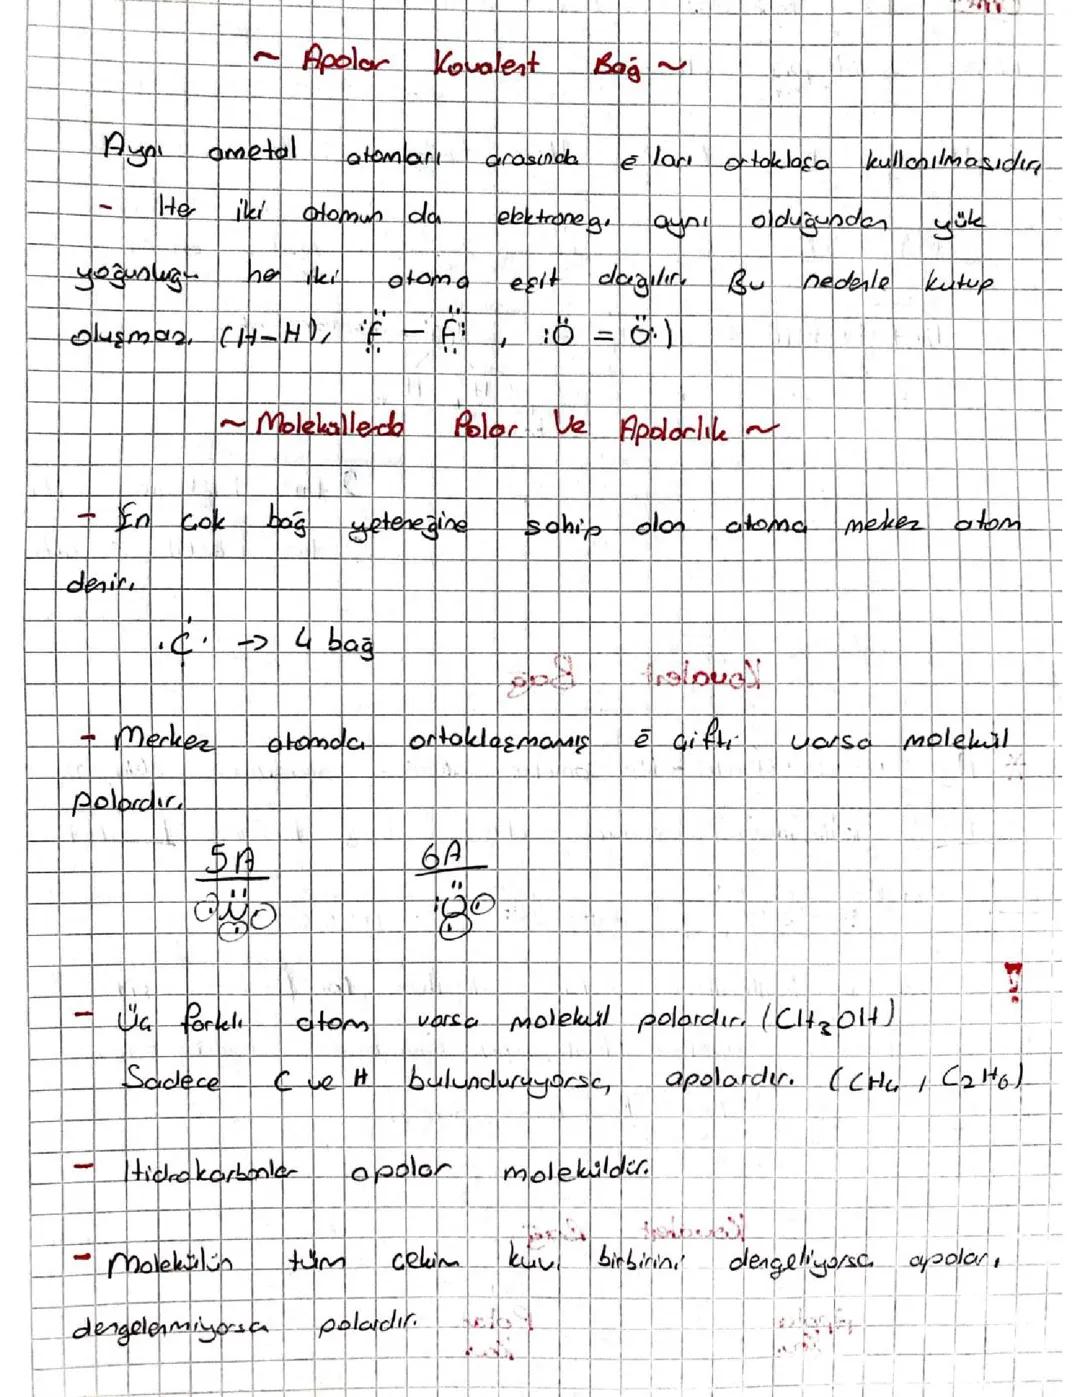 ~ Apolar Kovalent Bağ ~
Aynı ametal atomları arasında e ları ortaklaşa kullanılmasıdır.
- Her iki atomun da elektroneg. aynı olduğundan yük
yoğunluğu her iki atoma eşit dağılır. Bu nedenle kutup
oluşmaz. (H-H), :F̈ - F̈: , :Ö = Ö:)
~ Moleküllerde Polar Ve Apolarlık ~
- En çok bağ yeteneğine sahip olan atoma mekez atom
denir.
·C· -> 4 bağ
- Merkez atomda ortaklaşmamış ē çifti varsa molekül
polardır.
5A 6A
- Üç farklı atom varsa molekül polardır. (CH₃OH)
Sadece C ve H bulunduruyorsa, apolardır. (CH₄ , C₂H₆)
- Hidrokarbonlar apolar moleküldür.
- Molekülün tüm çekim kuv. birbirini dengeliyorsa apolar,
dengelenmiyorsa polardır.